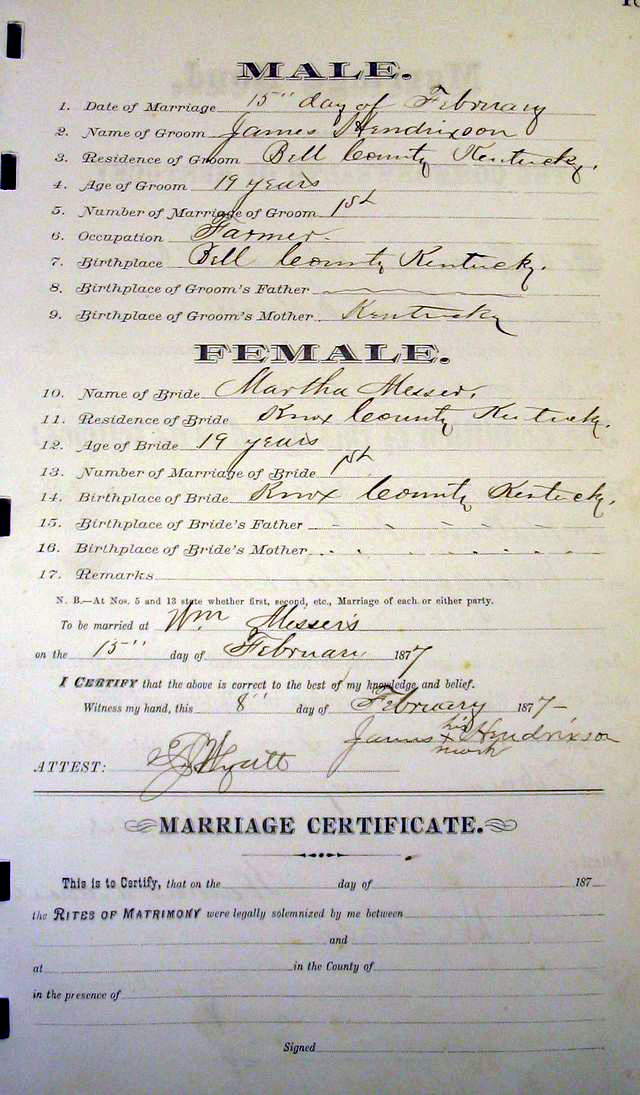 MALE.
1. Date of Marriage 15" day of February
2. Name of Groom James Hendrixson
3. Residence of Groom Bell County Kentucky.
4. Age of Groom 19 years
5. Number of Marriage of Groom 1st
6. Occupation Farmer.
7. Birthplace Bell County Kentucky.
8. Birthplace of Groom's Father
9. Birthplace of Groom's Mother Kentucky
FEMALE.
10. Name of Bride Martha Messer.
11. Residence of Bride Knox County Kentucky.
12. Age of Bride 19 years
13. Number of Marriage of Bride 1st
14. Birthplace of Bride Knox County Kentucky.
15. Birthplace of Bride's Father
16. Birthplace of Bride's Mother
17. Remarks
N. B.—At Nos. 5 and 13 state whether first, second, etc., Marriage of each or either party.
To be married at Wm Messers
on the 15" day of February 1877
I CERTIFY that the above is correct to the best of my knowledge and belief.
Witness my hand, this 8" day of February 1877-
James his x mark Hendrixson
ATTEST: Wyatt
MARRIAGE CERTIFICATE.
This is to Certify, that on the day of 187
the RITES OF MATRIMONY were legally solemnized by me between
and
at in the County of
in the presence of
Signed